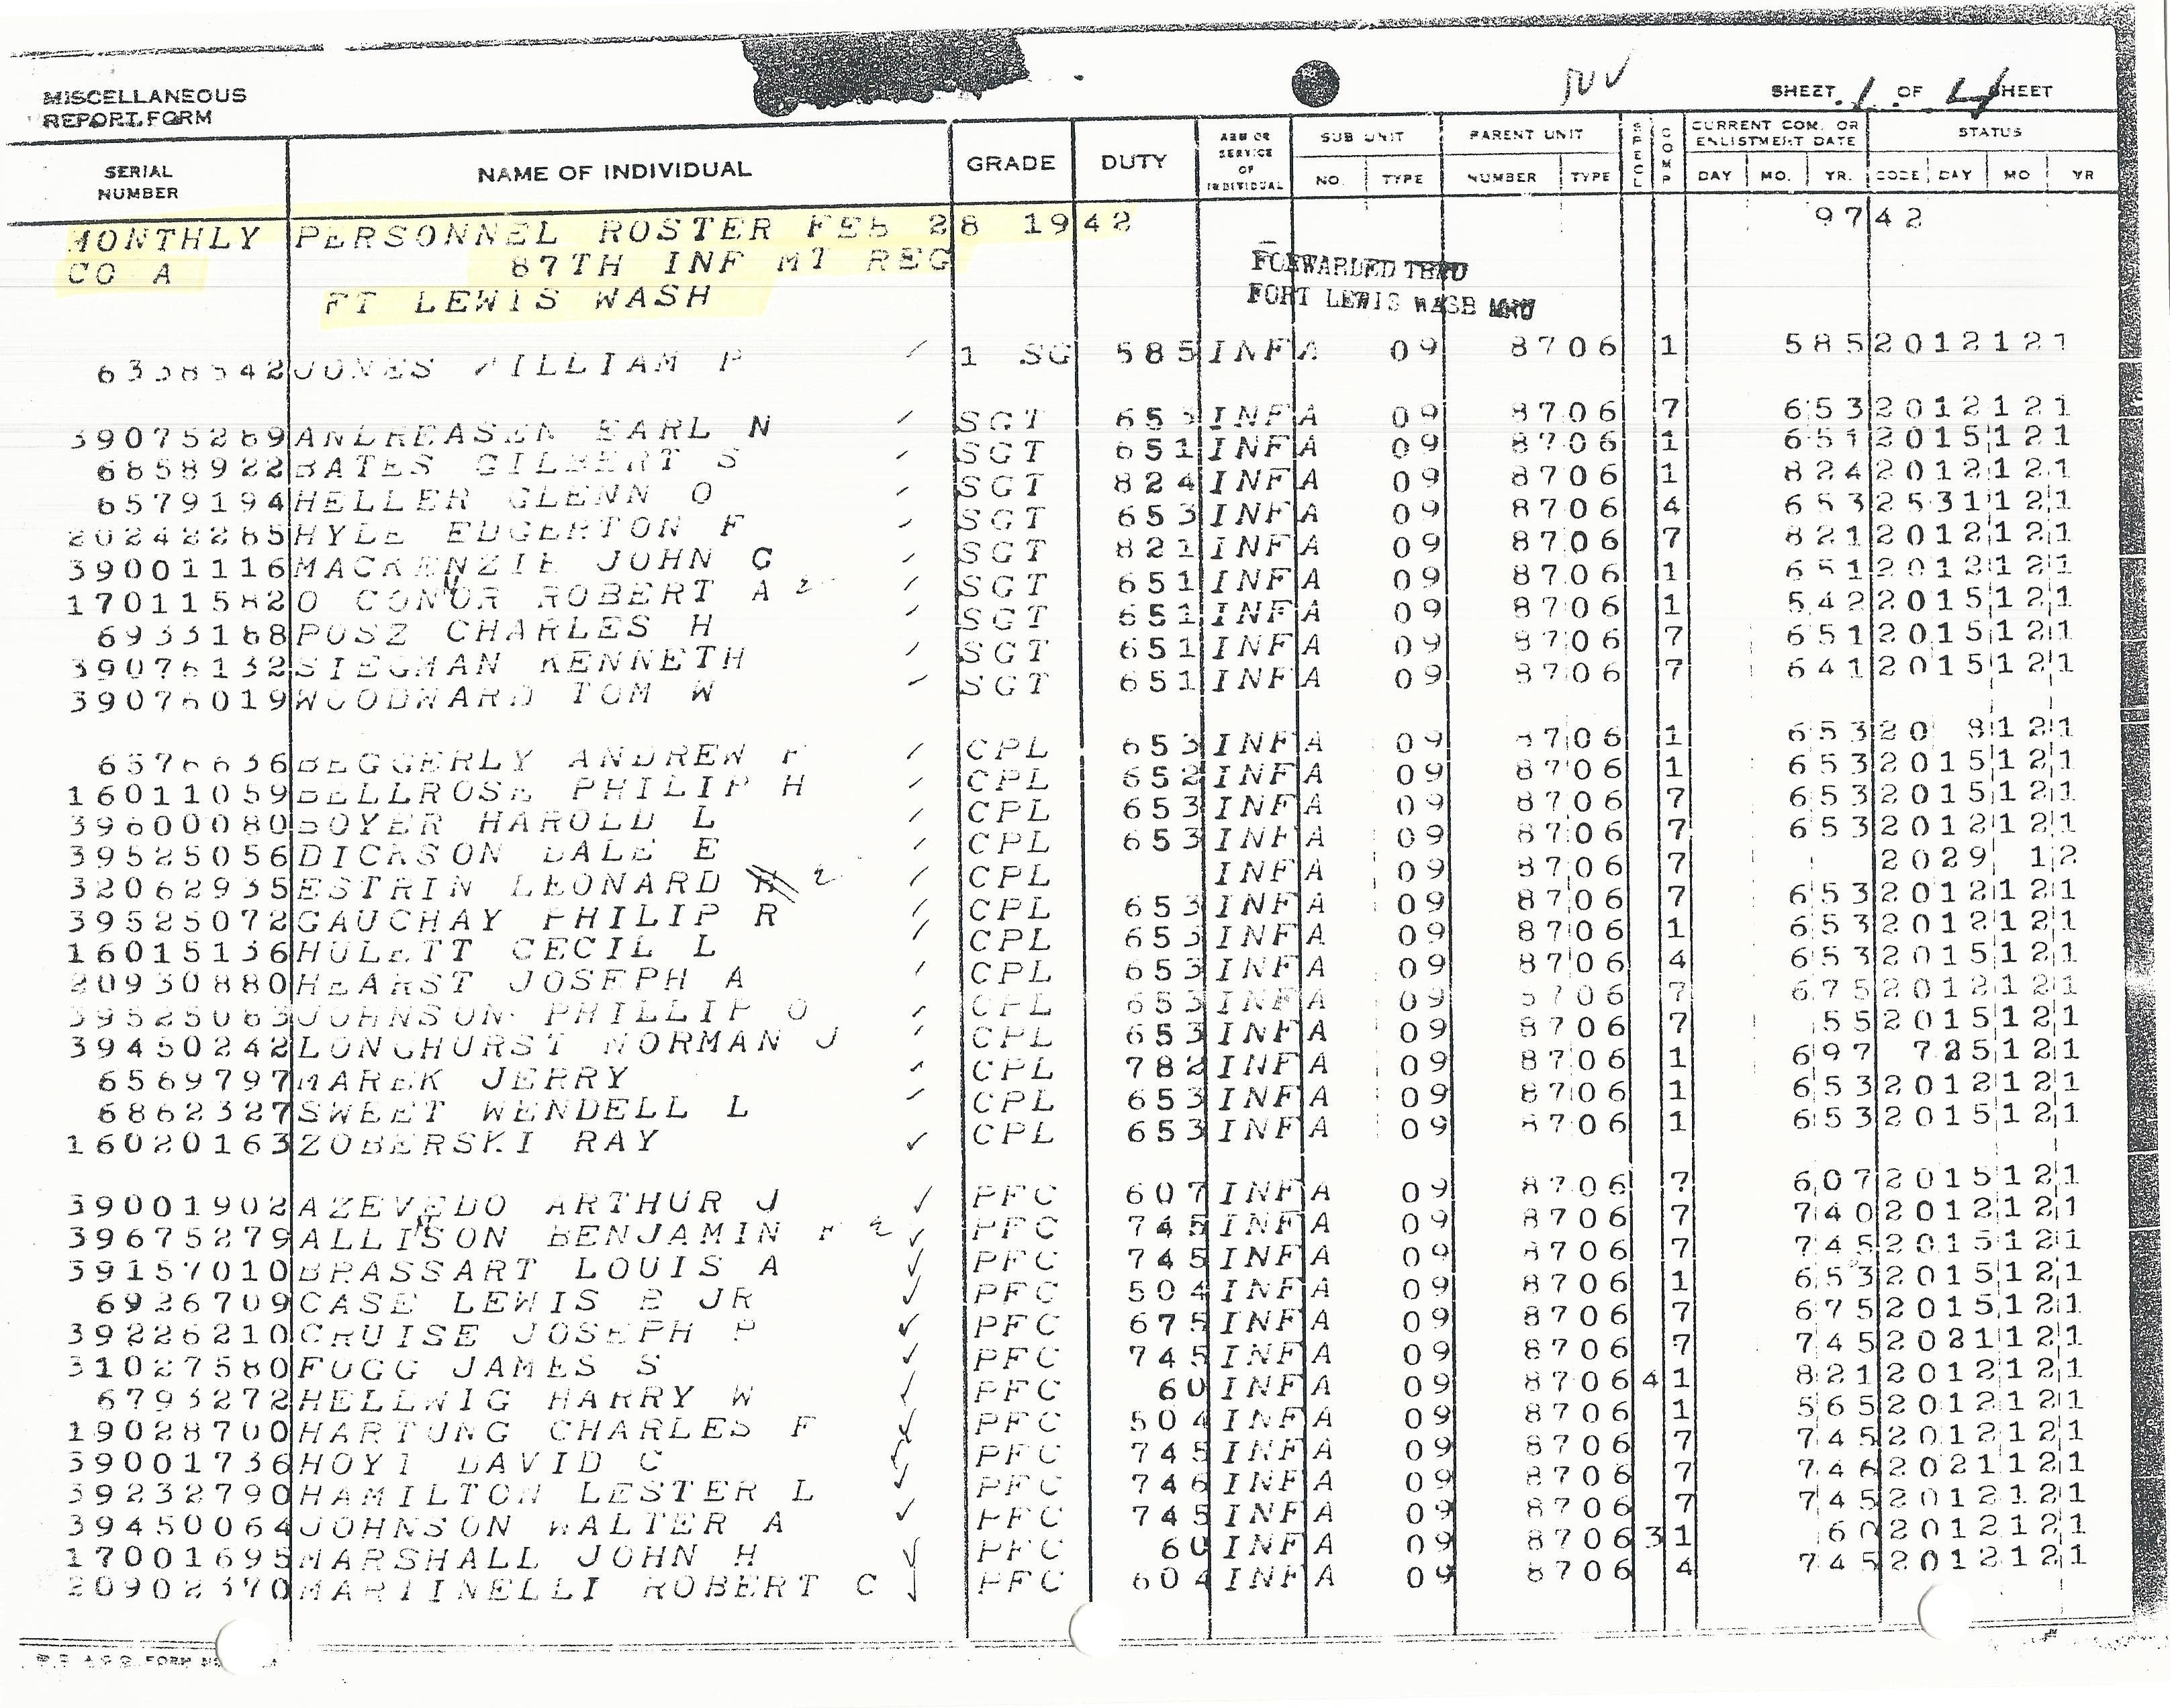 MISCELLANEOUS
REPORT FORM
SHEET 1 OF 4 SHEET
SERIAL NUMBER NAME OF INDIVIDUAL GRADE DUTY ARM OR SERVICE OF INDIVIDUAL SUB UNIT NO. TYPE PARENT UNIT NUMBER TYPE SPECL COMP CURRENT COM. OR ENLISTMENT DATE DAY MO. YR. STATUS CODE DAY MO YR
MONTHLY PERSONNEL ROSTER FEB 28 1942 9742
CO A 87TH INF MT REG
FT LEWIS WASH
FORWARDED THRU
FORT LEWIS WASH MRU
JONES WILLIAM P 1 SG 585 INF A 09 8706 1 5852012121
39075289 ANDREASEN EARL N SGT 653 INF A 09 8706 7 6532012121
6858922 BATES GILBERT S SGT 651 INF A 09 8706 1 6512015121
6579194 HELLER GLENN O SGT 824 INF A 09 8706 1 8242012121
20242285 HYLE EDGERTON F SGT 653 INF A 09 8706 4 6532531121
39001116 MACKENZIE JOHN G SGT 821 INF A 09 8706 7 8212012121
17011582 O CONOR ROBERT A SGT 651 INF A 09 8706 1 6512012121
6933168 POSZ CHARLES H SGT 651 INF A 09 8706 1 5422015121
39076132 SIEGMAN KENNETH SGT 651 INF A 09 8706 7 6512015121
39076019 WOODWARD TOM W SGT 651 INF A 09 8706 7 6412015121
6576636 BEGGERLY ANDREW F CPL 653 INF A 09 8706 1 65320 8121
16011059 BELLROSE PHILIP H CPL 652 INF A 09 8706 1 6532015121
39600080 BOYER HAROLD L CPL 653 INF A 09 8706 7 6532015121
39525056 DICKSON DALE E CPL 653 INF A 09 8706 7 6532012121
32062935 ESTRIN LEONARD CPL INF A 09 8706 7 2029 12
39525072 GAUCHAY PHILIP R CPL 653 INF A 09 8706 7 6532012121
16015136 HULETT CECIL L CPL 653 INF A 09 8706 1 6532012121
20930880 HEARST JOSEPH A CPL 653 INF A 09 8706 4 6532015121
39525063 JOHNSON PHILLIP O CPL 653 INF A 09 8706 7 6752012121
39450242 LONGHURST NORMAN J CPL 653 INF A 09 8706 7 552015121
6569797 MAREK JERRY CPL 782 INF A 09 8706 1 697 725121
6862327 SWEET WENDELL L CPL 653 INF A 09 8706 1 6532012121
16020163 ZOBERSKI RAY CPL 653 INF A 09 8706 1 6532015121
39001902 AZEVEDO ARTHUR J PFC 607 INF A 09 8706 7 6072015121
39675279 ALLISON BENJAMIN F PFC 745 INF A 09 8706 7 7402012121
39157010 BRASSART LOUIS A PFC 745 INF A 09 8706 7 7452015121
6926709 CASE LEWIS E JR PFC 504 INF A 09 8706 1 6532015121
39226210 CRUISE JOSEPH P PFC 675 INF A 09 8706 7 6752015121
31027580 FOGG JAMES S PFC 745 INF A 09 8706 7 7452021121
6793272 HELLWIG HARRY W PFC 60 INF A 09 8706 4 1 8212012121
19028700 HARTUNG CHARLES F PFC 504 INF A 09 8706 1 5652012121
39001736 HOYT DAVID C PFC 745 INF A 09 8706 7 7452012121
39232790 HAMILTON LESTER L PFC 746 INF A 09 8706 7 7462021121
39450064 JOHNSON WALTER A PFC 745 INF A 09 8706 7 7452012121
17001695 MARSHALL JOHN H PFC 60 INF A 09 8706 3 1 602012121
20902370 MARTINELLI ROBERT C PFC 604 INF A 09 8706 4 7452012121